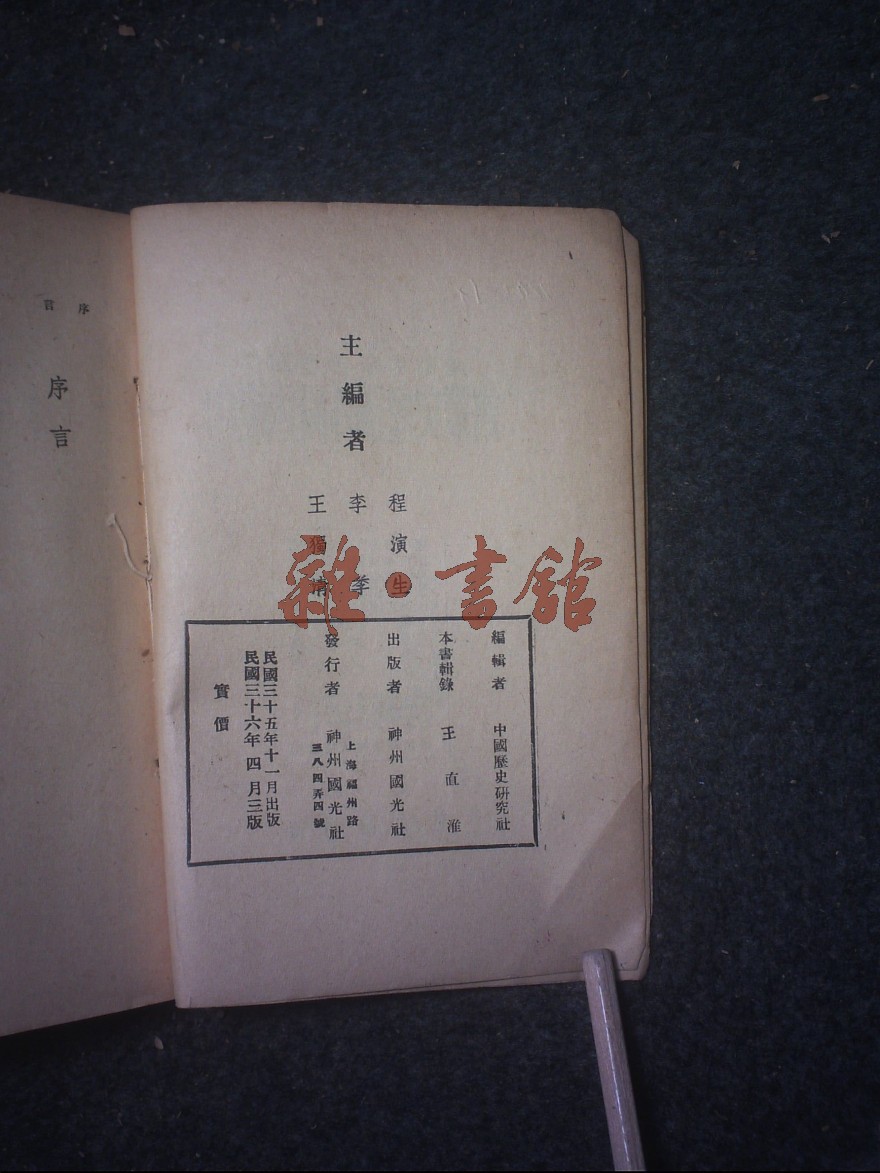 主編者
程演生
李季
王獨清
編輯者 中國歷史研究社
本書輯錄 王直淮
出版者 神州國光社
發行者 神州國光社
上海福州路
三八四弄四號
民國三十五年十一月出版
民國三十六年四月三版
實價
序言
序言
雜·書館